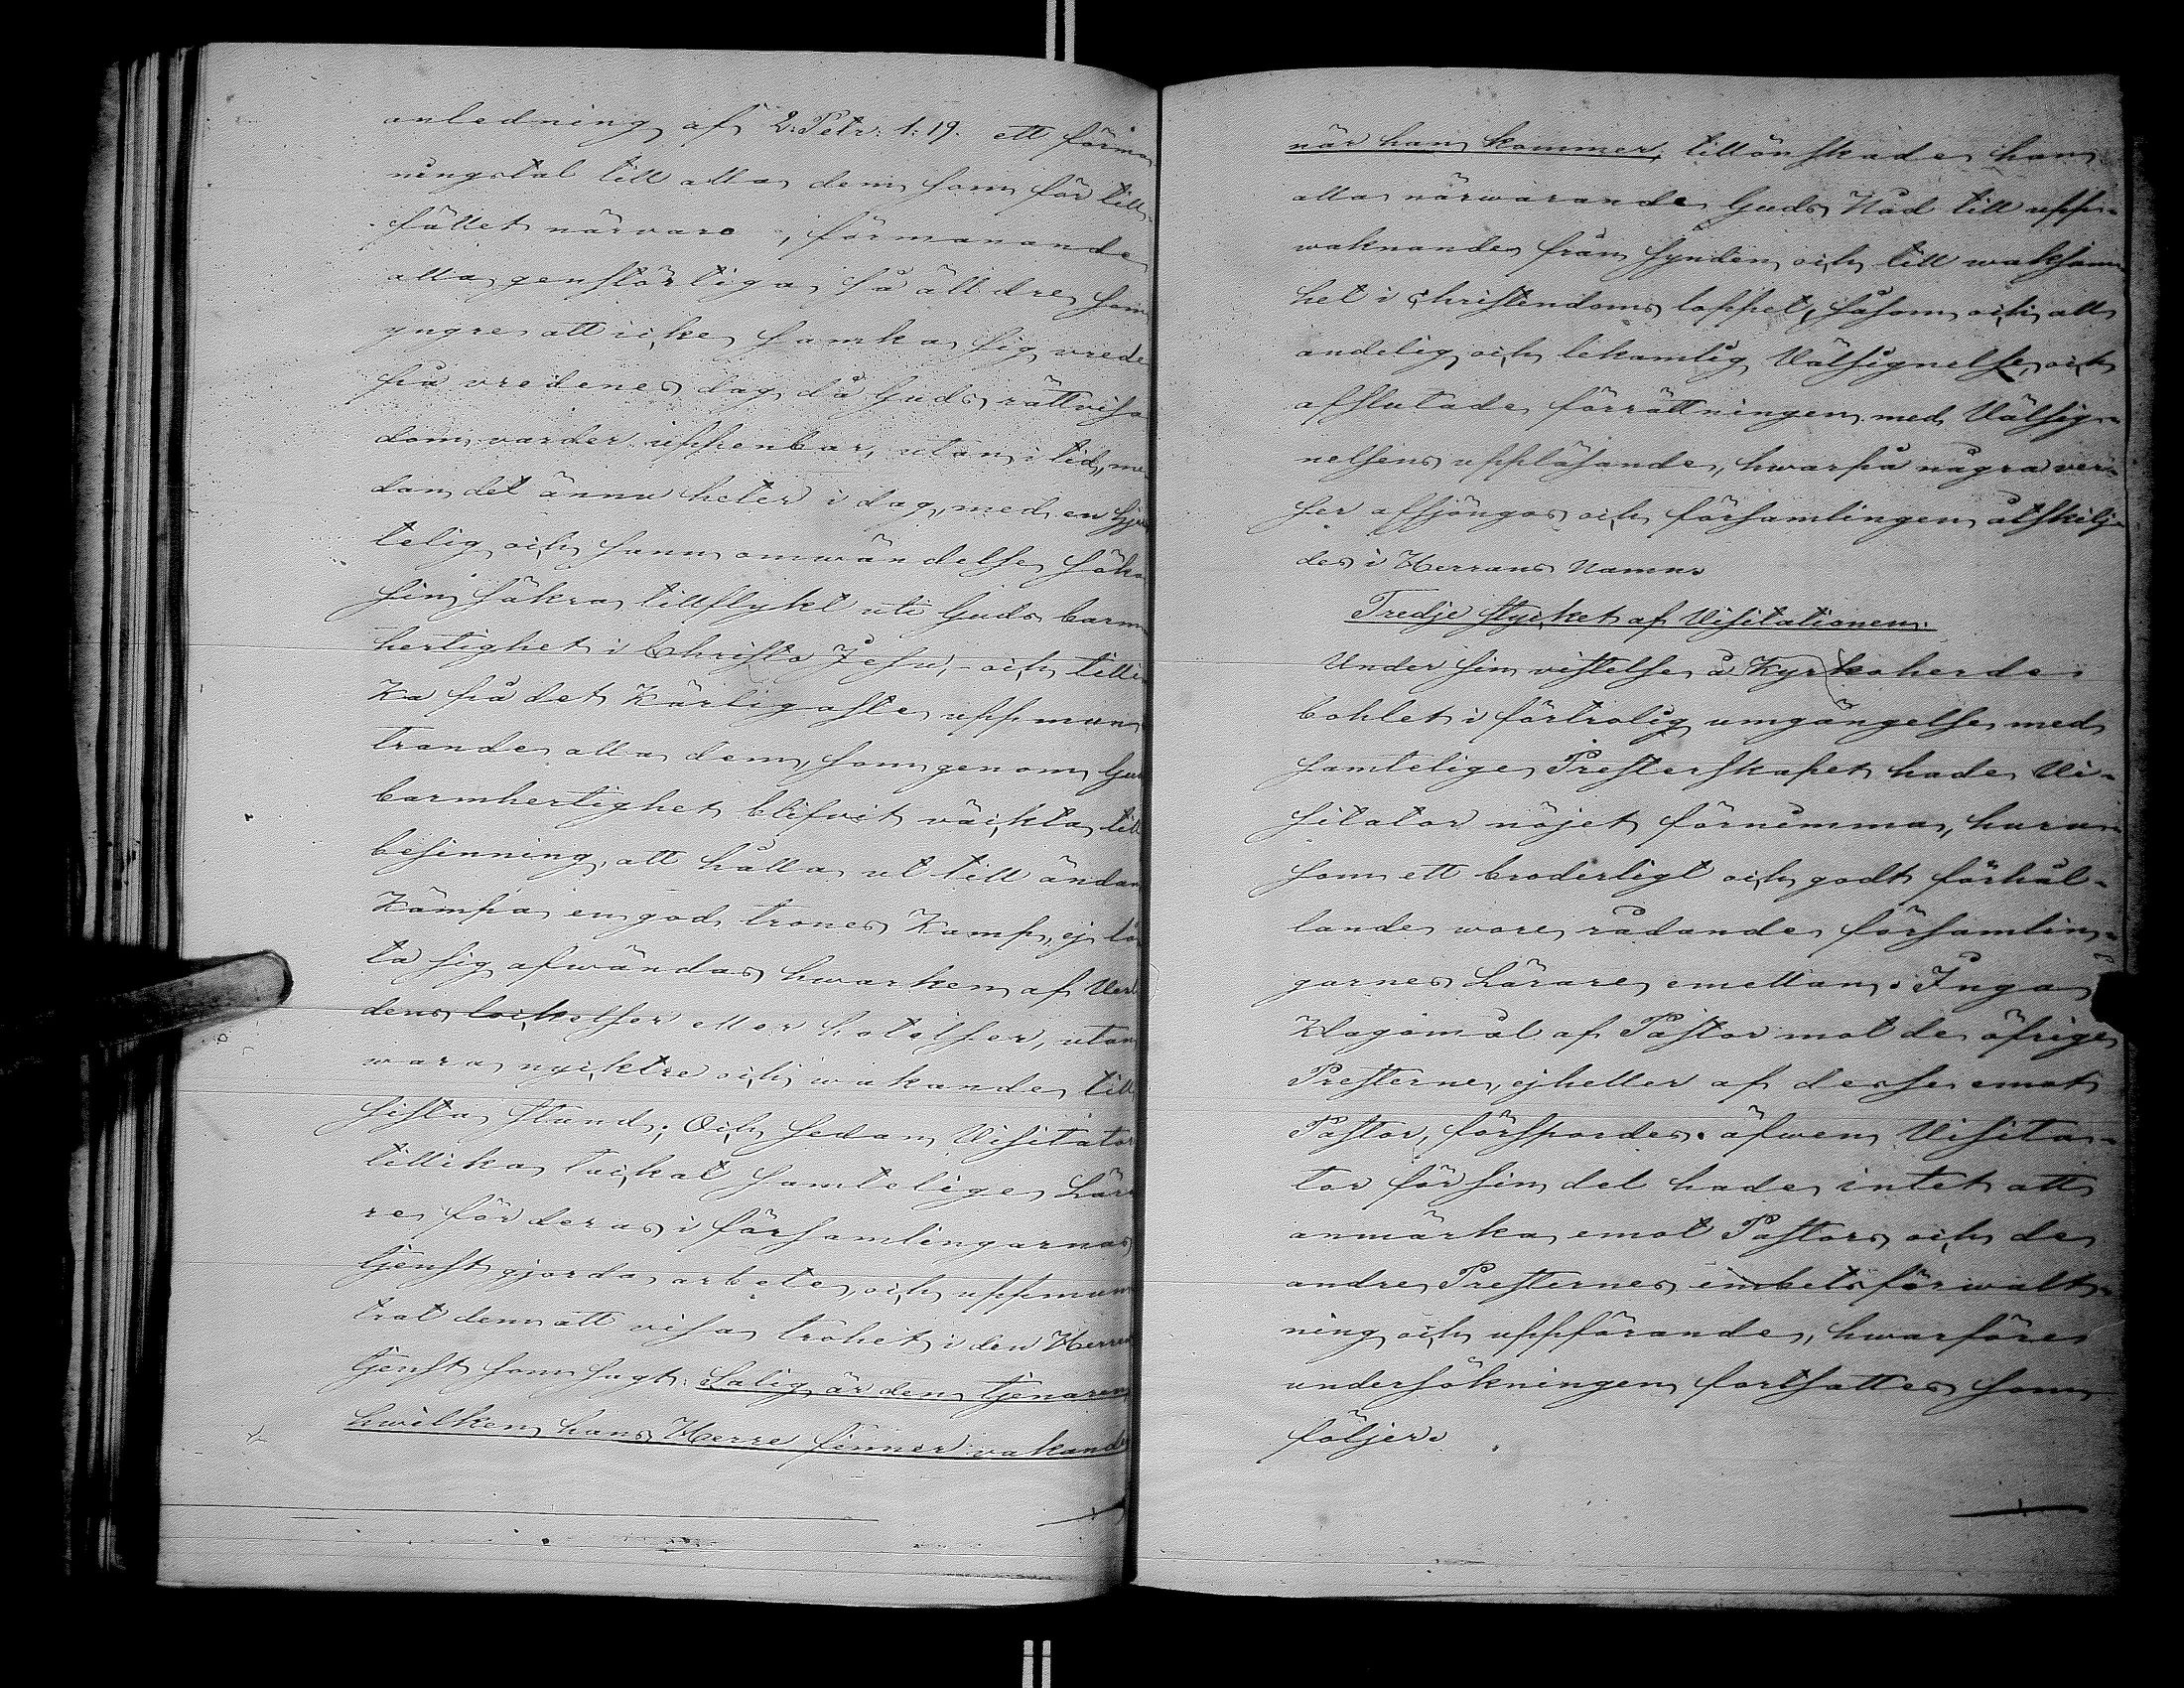 anledning af 2. Petr: 1: 19. ett förma
ningstal till alla dem som för till-
fället närvaro, förmanande
alla genstörtiga, så älldre som
yngre att icke samka sig vrede
på vredenes dag, då Guds rättvisa
dom varder uppenbar, utan i tid, me
dan det ännu heter i dag, med en hjer
telig och sann omwändelse söka
sin säkra tillflykt uti Guds barm
hertighet i Christo Jesu, och tilli
ka på det Kärligaste uppmun
trande alla dem, som genom Gud
barmhertighet blifvit väckta till
besinning, att hålla ut till ändan
Kämpa en god trones Kamp, ej lå
ta sig afwändas hwarken af Verl
dens lockelser eller hotelser, utan
wara nycktre och wakande till
sista stund; Och sedan Visitator
tillika tackat samtelige Lära
re för deras i församlingarnas
tjenst gjorda arbete, och uppmun
trat dem att visa trohet i den Herren
tjenst som sagt: Salig är den tjenaren
hwilken hans Herre finner vakande
när han kommer, tillönskade han
alla närwarande Guds Nåd till upp-
waknande från synden och till waksam
het i christendoms loppet, såsom och all
andelig och lekamlig Välsignelse, och
afslutade förrättningen med Välsig-
nelsens uppläsande, hwarpå några ver-
ser afsjöngos och församlingen åtskilj-
des i Herrans Namn.
Tredje stycket af Visitationen.
Under sin vistelse å Kyrkoherde
bohlet i förtrolig umgängelse med
samtelige Presterskapet hade Vi-
sitator nöjet förnimma, huru
som ett broderligt och godt förhål-
lande wore rådande församlin-
garnes Lärare emellan. Inga
Klagomål af Pastor mot de öfrige
Presterne, ejheller af desse emot
Pastor, förspordes. äfwen Visita-
tor för sin del hade intet att
anmärka emot Pastors och de
andre Presternes embetsförwalt-
ning och uppförande, hwarföre
undersökningen fortsattes som
följer.